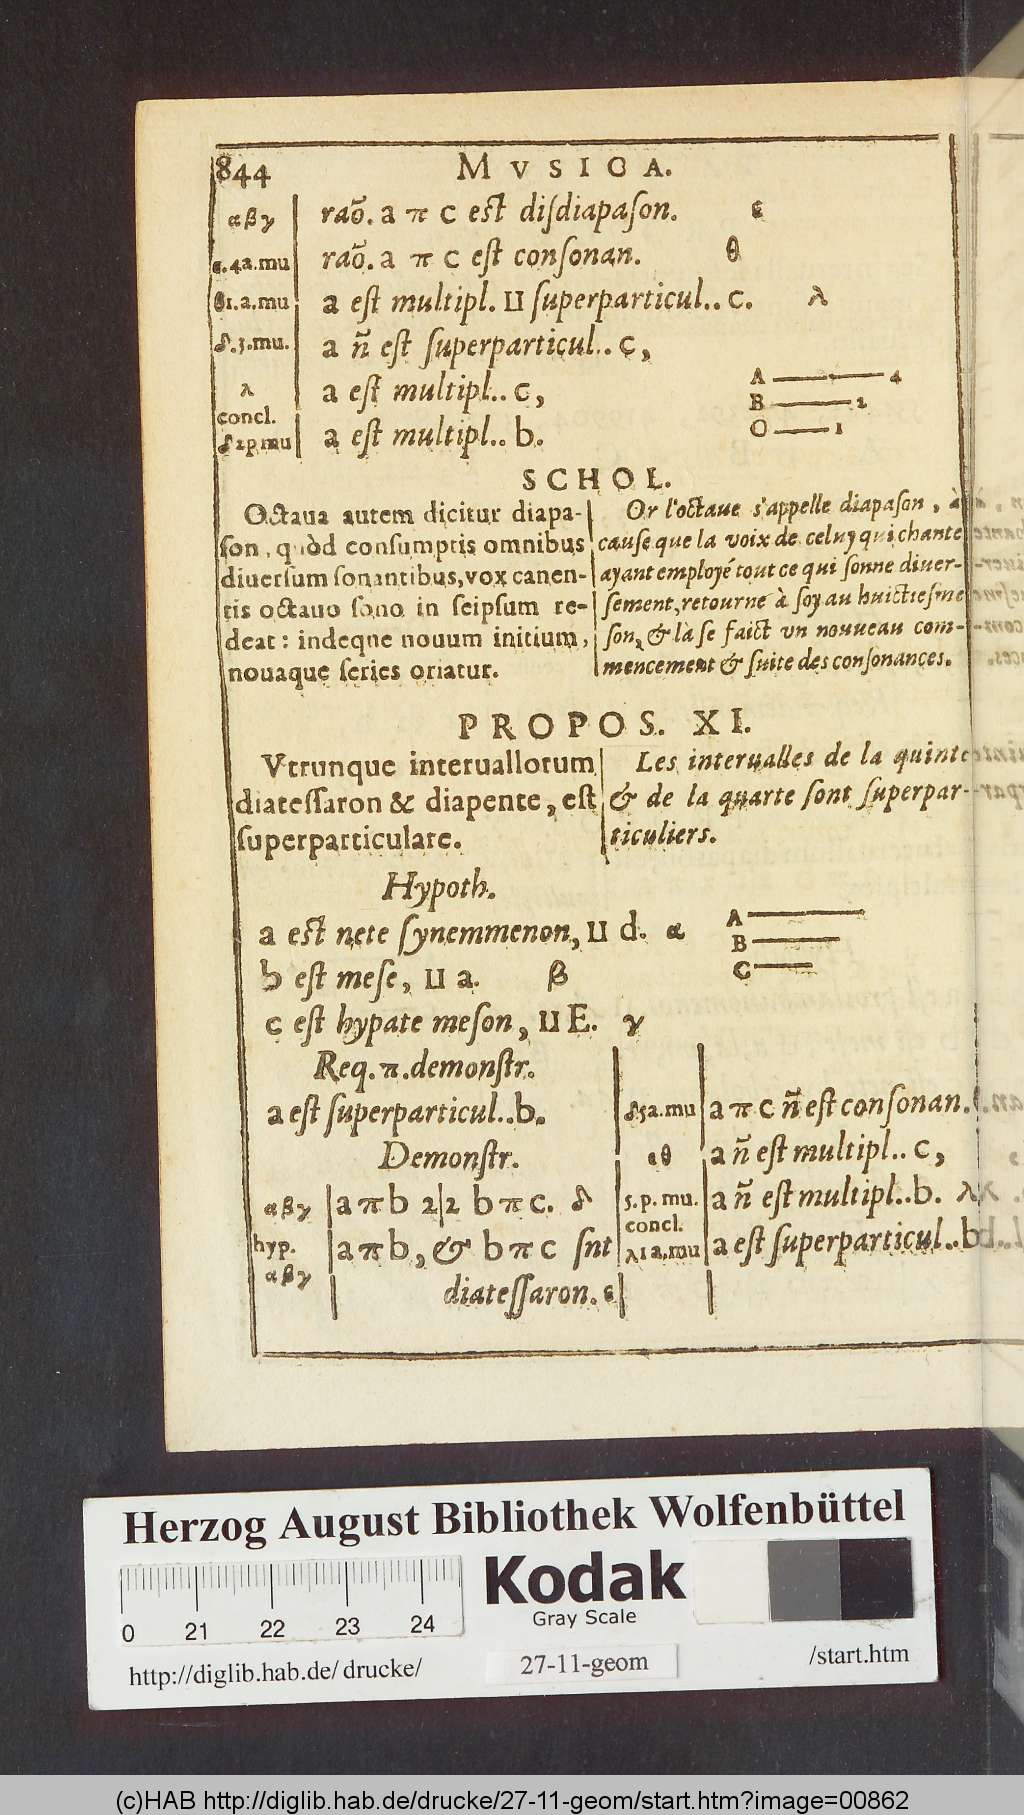 844 MVSICA.
αβγ raõ. a π c est disdiapason. ε
ε.4a.mu raõ. a π c est consonan. θ
θ1.a.mu a est multipl. ⊔ superparticul.. c. λ
δ.3.mu. a ñ est superparticul.. c,
λ a est multipl.. c,
concl.
δ2p mu a est multipl.. b.
A 4
B 2
C 1
SCHOL.
Octaua autem dicitur diapa-
son, quòd consumptis omnibus
diuersum sonantibus, vox canen-
tis octauo sono in seipsum re-
deat: indeque nouum initium,
nouaque series oriatur.
Or l'octaue s'appelle diapason, à
cause que la voix de celuy qui chante
ayant employé tout ce qui sonne diuer-
sement, retourne à soy au huictiesme
son, & là se faict vn nouueau com-
mencement & suite des consonances.
PROPOS. XI.
Vtrunque interuallorum
diatessaron & diapente, est
superparticulare.
Les interualles de la quinte
& de la quarte sont superpar-
ticuliers.
Hypoth.
a est nete synemmenon, ⊔ d. α
b est mese, ⊔ a. β
c est hypate meson, ⊔ E. γ
A
B
C
Req. π. demonstr.
a est superparticul.. b.
Demonstr.
αβγ a π b 2|2 b π c. δ
hyp. a π b, & b π c snt
αβγ diatessaron. ε
δ5a.mu a π c ñ est consonan. θ
εθ a ñ est multipl.. c,
5.p.mu. a ñ est multipl.. b. λ
concl.
λ1a.mu a est superparticul.. b
Herzog August Bibliothek Wolfenbüttel
0 21 22 23 24
Kodak
Gray Scale
http://diglib.hab.de/drucke/ 27-11-geom /start.htm
(c)HAB http://diglib.hab.de/drucke/27-11-geom/start.htm?image=00862